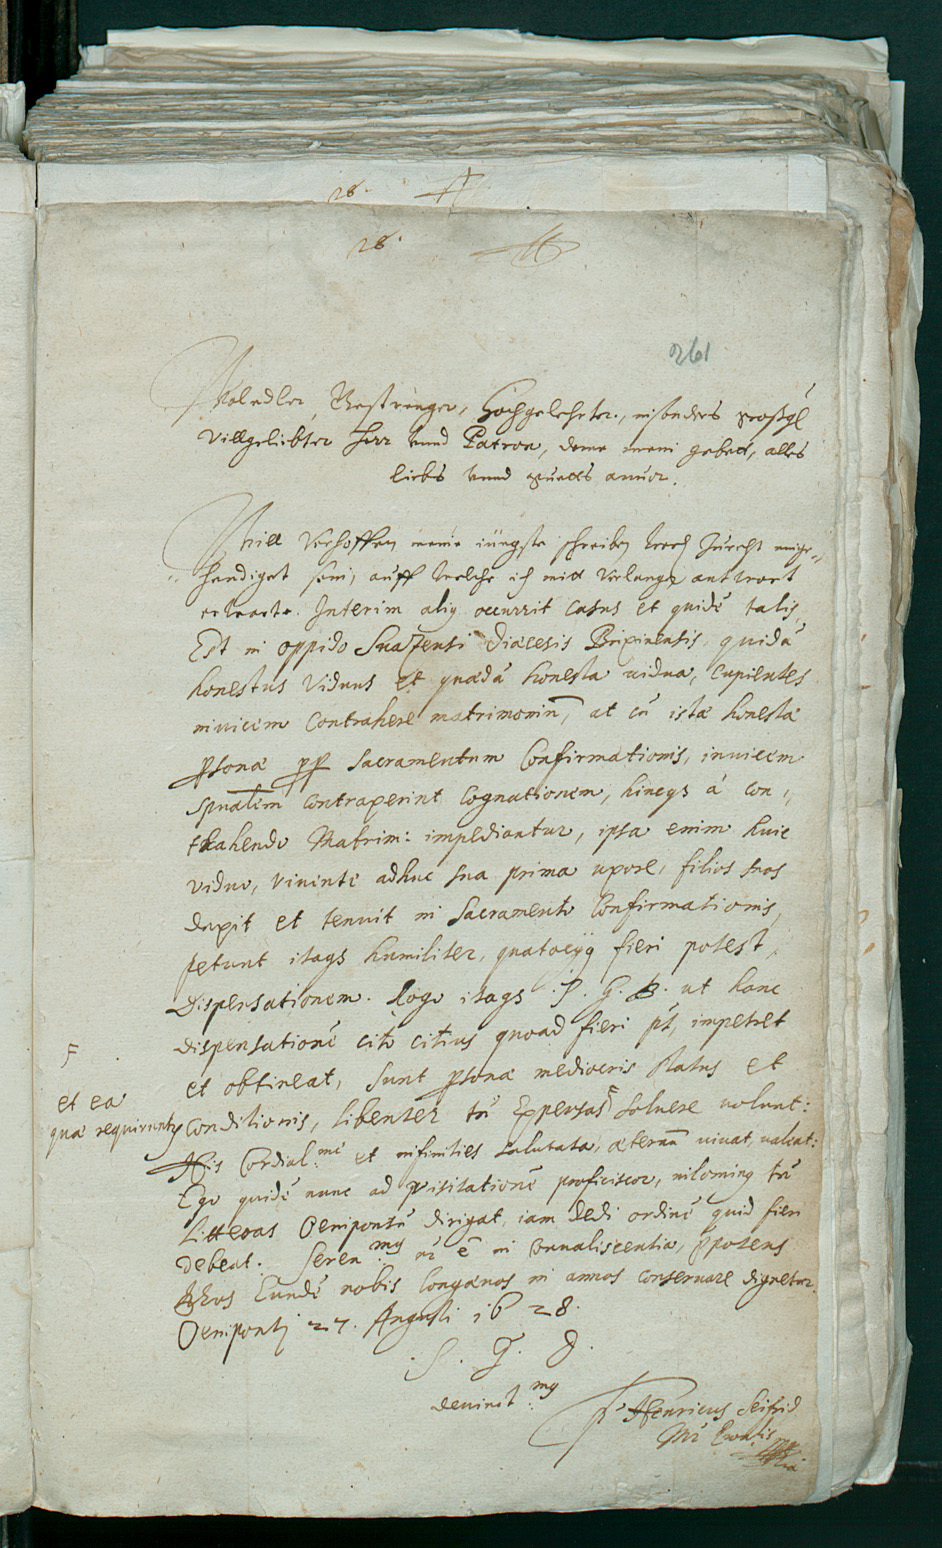 28.
28.
261
Woledler, Gestrenger, Hochgelehrter, insonders großgl
Villgeliebter Herr unnd Patron, deme mein gebett, alles
liebs unnd guetts zuuor.
Will verhoffen meine iüngste schreiben werd Zurecht einge„
„hendiget sein, auff welche ich mitt verlangen antwort
erwarte. Interim aliq occurrit casus et quidē talis,
Est in oppido Suazensi Diœcesis Brixinensis, quidā
honestus viduus et quædā honesta vidua, cupientes
inuicem contrahere matrimoniū, at cū istæ honestæ
psonæ pp sacramentum Confirmationis, inuicem
spualem contraxerint cognationem, hincqs à con„
trahendo Matrim: impediantur, ipsa enim huic
viduo, viuente adhuc sua prima uxore, filios suos
duxit et tenuit in sacramento Confirmationis,
petunt itaqs humiliter, quatocyq fieri potest,
Dispensationem. Rogo itaqs .S. G. D. ut hanc
dispensationē cito citius quoad fieri pt, impetret
et obtineat, sunt psonæ mediocris status et
conditionis, libenter tn Expensas F soluere uolunt:
F
et ea
quæ requiruntur
His Cordial:me et infinities salutata, æternū uiuat, ualeat:
Ego quidē nunc ad visitationē proficiscor, nilominq tn
Litteras Oenipontū dirigat, iam dedi ordinē quid fieri
debeat. Seren:mq nr ē in conualiscentia, ppotens
Deus Eundē nobis longæuos in annos conseruare dignetur.
Oeniponti 27. Augusti 1628.
.S. G. D.
deuinct:mq
F. Henricus Seifrid